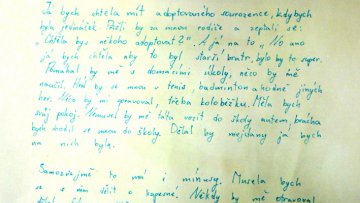 Já bych chtěla mít adoptovaného sourozence, kdybych
byla jedináček. Přišli by za mnou rodiče a zeptali se:
„Chtěla bys někoho adoptovat?" A já na to „No ano
já bych chtěla aby to byl starší bratr, bylo by to super.
Pomáhal by mě s domácími úkoly, něco by mě
naučil. Hrál by se mnou v tenis, badminton a hodně jiných
her. Něco by mi spravoval, třeba koloběžku. Měla bych
svůj pokoj. Nemusel by mě táta vozit do školy autem, brácha
by chodil se mnou do školy. Dělal by mejdany já bych
u nich byla.
Samozřejmě to má i mínusy. Musela bych
se s ním dělit o kapesné. Někdy by mě otravoval